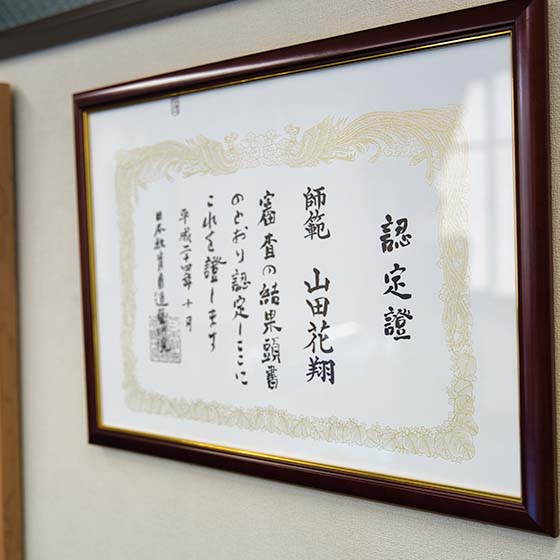 認定證
師範 山田花翔
審査の結果頭書
のとおり認定しここに
これを證します
平成二十四年十月
日本教育書道藝術院